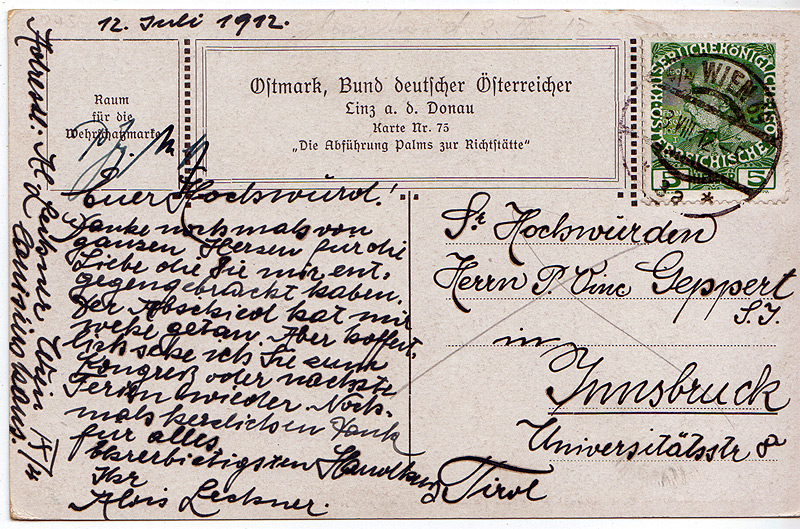 12. Juli 1912.
Raum
für die
Wehrschatzmarke
Ostmark, Bund deutscher Österreicher
Linz a. d. Donau
Karte Nr. 75
„Die Abführung Palms zur Richtstätte“
Euer Hochwürd.!
Danke nochmals von
ganzen Herzen für die
Liebe die Sie mir ent-
gegengebracht haben.
Der Abschied hat mir
wehe getan. Aber hoffent-
lich sehe ich Sie zum
Kongreß oder nächste
Ferien wieder. Noch-
mals herzlichen Dank
für alles.
Ehrerbietigsten Handkuß
Ihr
Alois Lechner.
Adresse: Lechner Wien IX/4
Canisiushaus.
Sr Hochwürden
Herrn P. Vinc Geppert
S.J.
in
Innsbruck
Universitätsstr 8
Tirol
KAISERLICHE KÖNIGLICHE
ÖSTERREICHISCHE
1908
5 5
WIEN